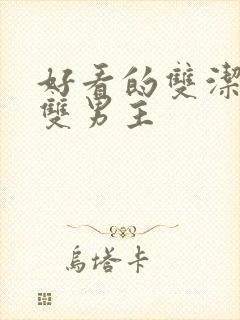 好看的雙潔
雙男主
烏塔卡